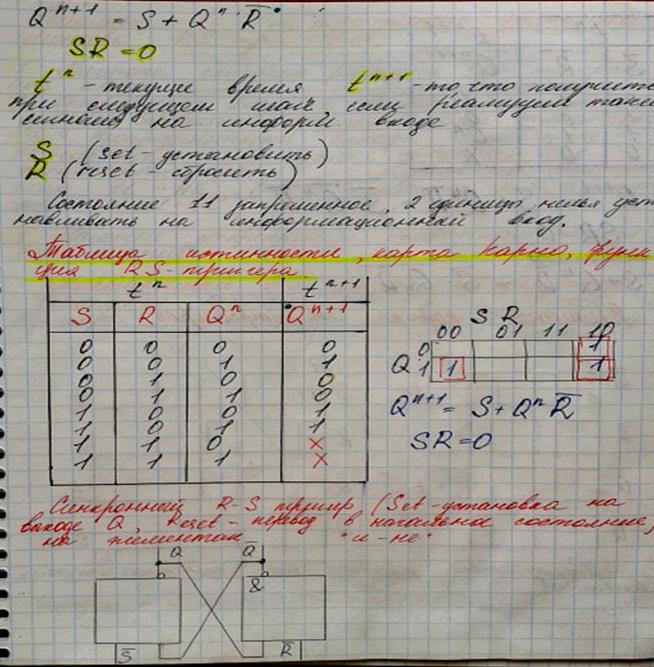 Qⁿ⁺¹ = S + Qⁿ · R̅
SR = 0
tⁿ - текущее время tⁿ⁺¹ - то, что получить
при следующем шаге, если реализуем такие
сигналы на информ. входе
S (set - установить)
R (reset - сбросить)
Состояние 11 запрещенное, 2 единицы нельзя уста
навливать на информационный вход.
Таблица истинности, карта Карно, функ
ция RS-триггера.
tⁿ tⁿ⁺¹
S R Qⁿ Qⁿ⁺¹
0 0 0 0
0 0 1 1
0 1 0 0
0 1 1 0
1 0 0 1
1 0 1 1
1 1 0 x
1 1 1 x
S R
00 01 11 10
0 1
Q 1 1 1
Qⁿ⁺¹ = S + Qⁿ R̅
SR = 0
Синхронный R-S триггер (Set - установка на
выходе Q, Reset - перевод в начальное состояние,
на элементах "и-не"
Q Q̅
&
S̅ R̅